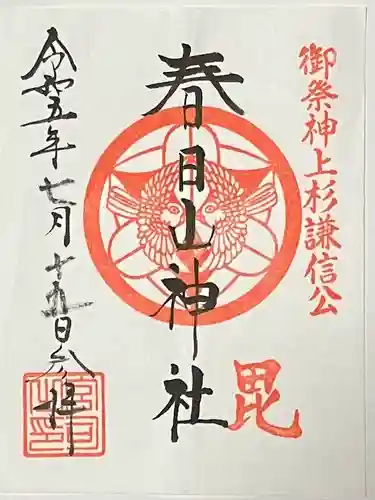 御祭神上杉謙信公
毘
春日山神社
令和五年七月十五日参拝